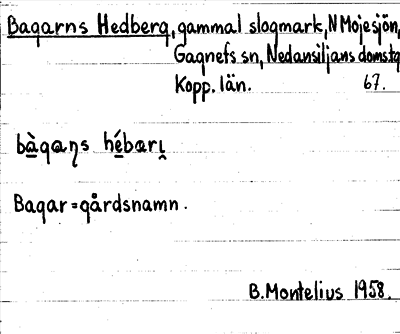 Bagarns Hedberg, gammal slogmark, N Mojesjön,
Gagnefs sn, Nedansiljans domstg
Kopp. län. 67.
bàgaɳs hébarı̯
Bagar = gårdsnamn.
B. Montelius 1958.